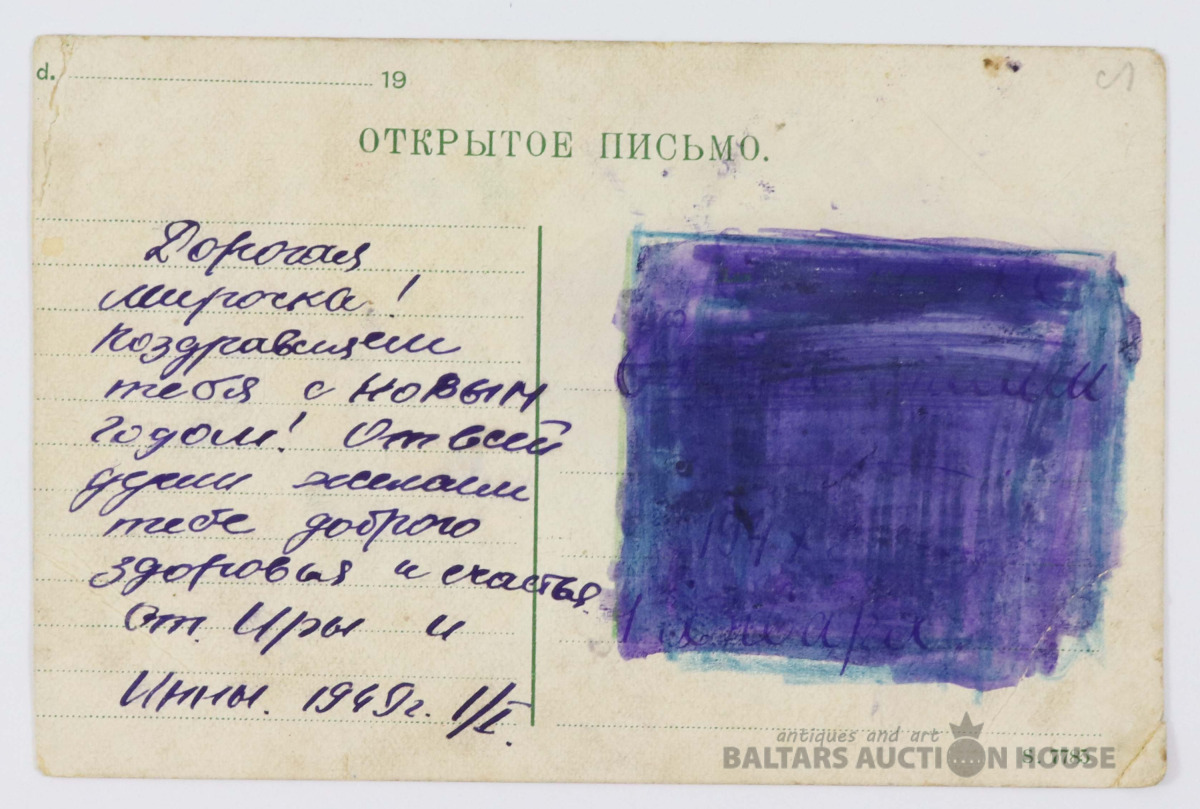 d. 19
ОТКРЫТОЕ ПИСЬМО.
Дорогая
Мирочка!
Поздравляем
тебя с новым
годом! От всей
души желаем
тебе доброго
здоровья и счастья.
От Иры и
Инны. 1949г. 1/I.
1 января
S. 7785
antiques and art
BALTARS AUCTION HOUSE